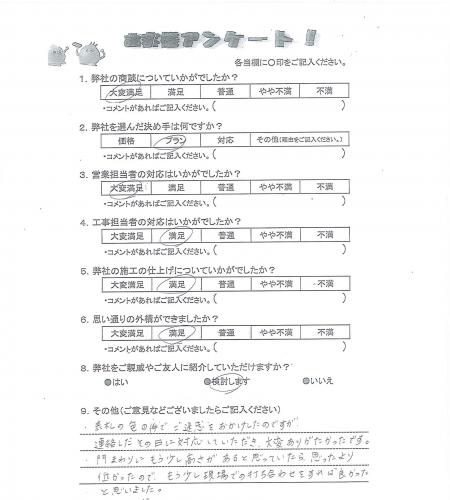 お客様アンケート!
各当欄に○印をご記入ください。
1. 弊社の商談についていかがでしたか?
大変満足 満足 普通 やや不満 不満
・コメントがあればご記入ください。( )
2. 弊社を選んだ決め手は何ですか?
価格 プラン 対応 その他(理由をご記入ください。)
・コメントがあればご記入ください。( )
3. 営業担当者の対応はいかがでしたか?
大変満足 満足 普通 やや不満 不満
・コメントがあればご記入ください。( )
4. 工事担当者の対応はいかがでしたか?
大変満足 満足 普通 やや不満 不満
・コメントがあればご記入ください。( )
5. 弊社の施工の仕上げについていかがでしたか?
大変満足 満足 普通 やや不満 不満
・コメントがあればご記入ください。( )
6. 思い通りの外構ができましたか?
大変満足 満足 普通 やや不満 不満
・コメントがあればご記入ください。( )
8. 弊社をご親戚やご友人に紹介していただけますか?
●はい ●検討します ●いいえ
9. その他(ご意見などございましたらご記入ください)
・表札の色の件でご迷惑をおかけしたのですが
連絡したその日に対応していただき、大変ありがたかったです。
・門まわりにもう少し高さがあると思っていたら思ったより
低かったので、もう少し現場での打ち合わせをすれば良かった
と思いました。